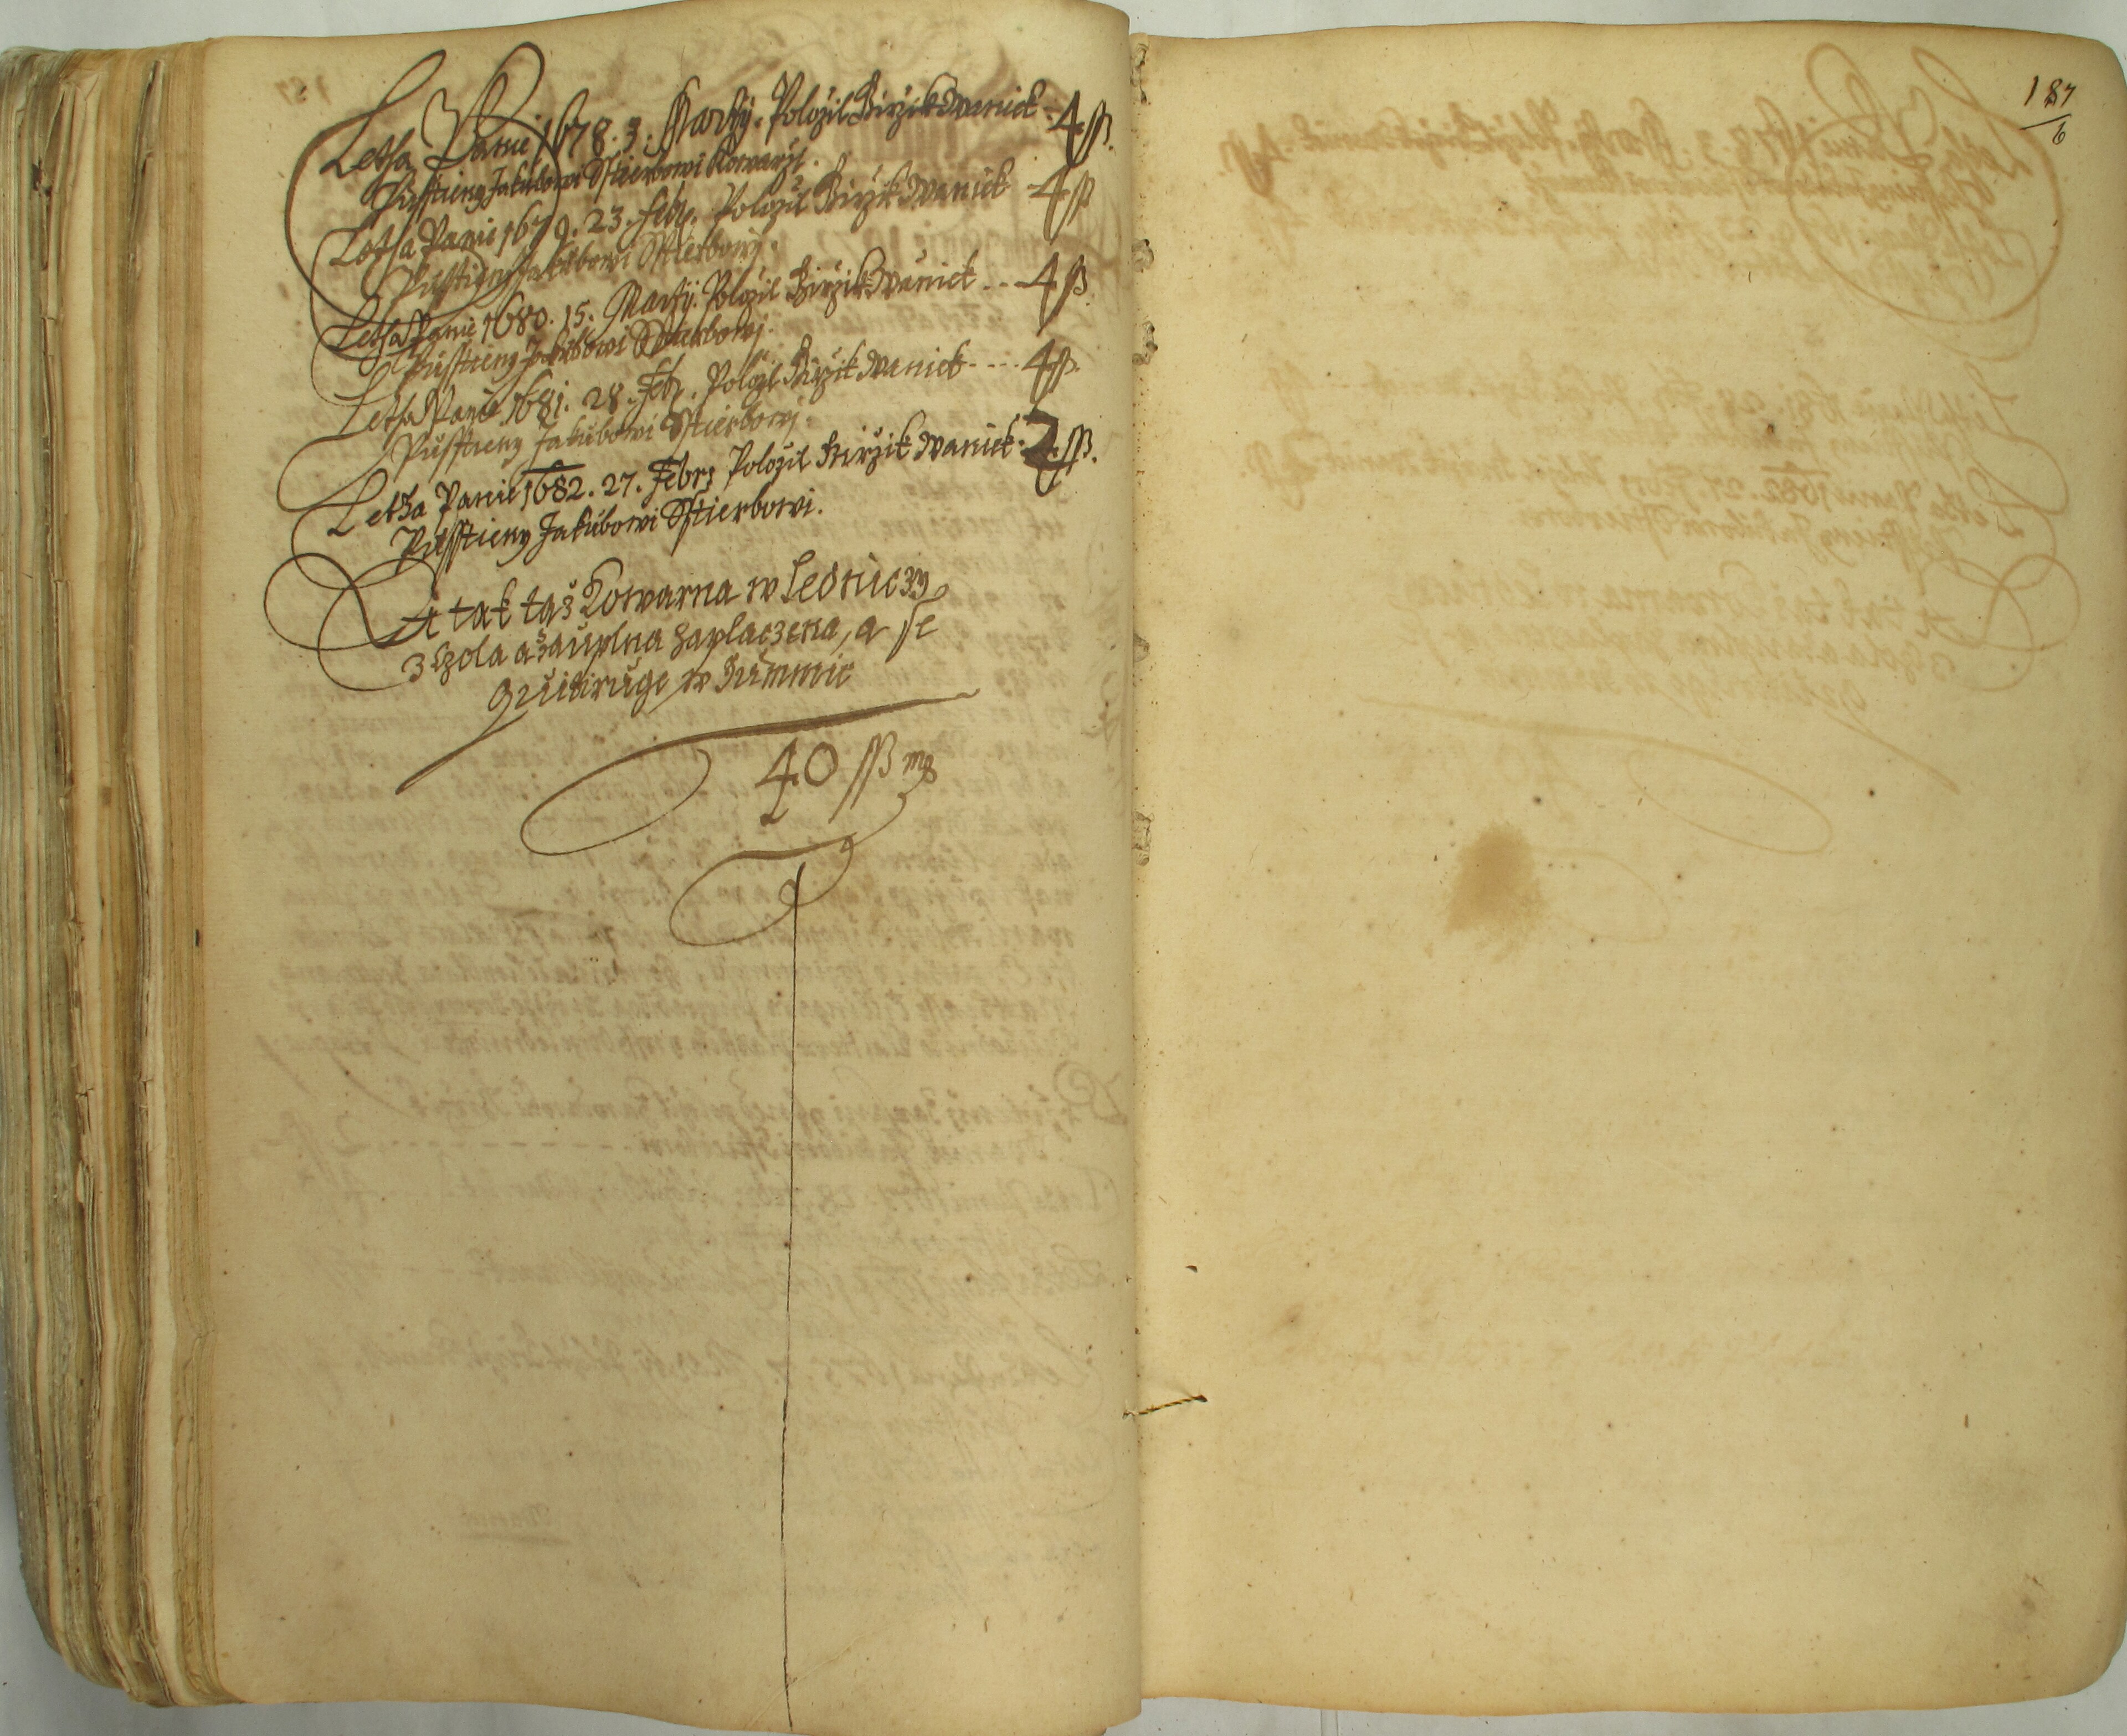 Letha Panie 1678. 3. Marty. Položil Jiržik Waniek - 4 ſſ.
Pusſtieny Jakubowi Sſtierbowi Kowarži.
Letha Panie 1679. 23. Feb. Položil Jiržik Waniek 4 ſſ
Pusſtieny Jakubowi Sſtierbowi.
Letha Panie 1680. 15. Martij. Položil Jiržik Waniek .. 4 ſſ.
Pusſtieny Jakubowi Sſtierbowj.
Letha Panie 1681. 28. Feb. Položil Jiržik Waniek .... 4 ſſ.
Pusſtieny Jakubowi Sſtierbowj.
Letha Panie 1682. 27. Febr: Položil Jiržik Waniek. 2 ſſ.
Pusſtieny Jakubowi Sſtierbowi.
A tak taž Kowarna w Lednieczy
zhola a zauplna zaplaczena, a ſe
quitiruge w Summie
40 ſſ mȝ
187
6